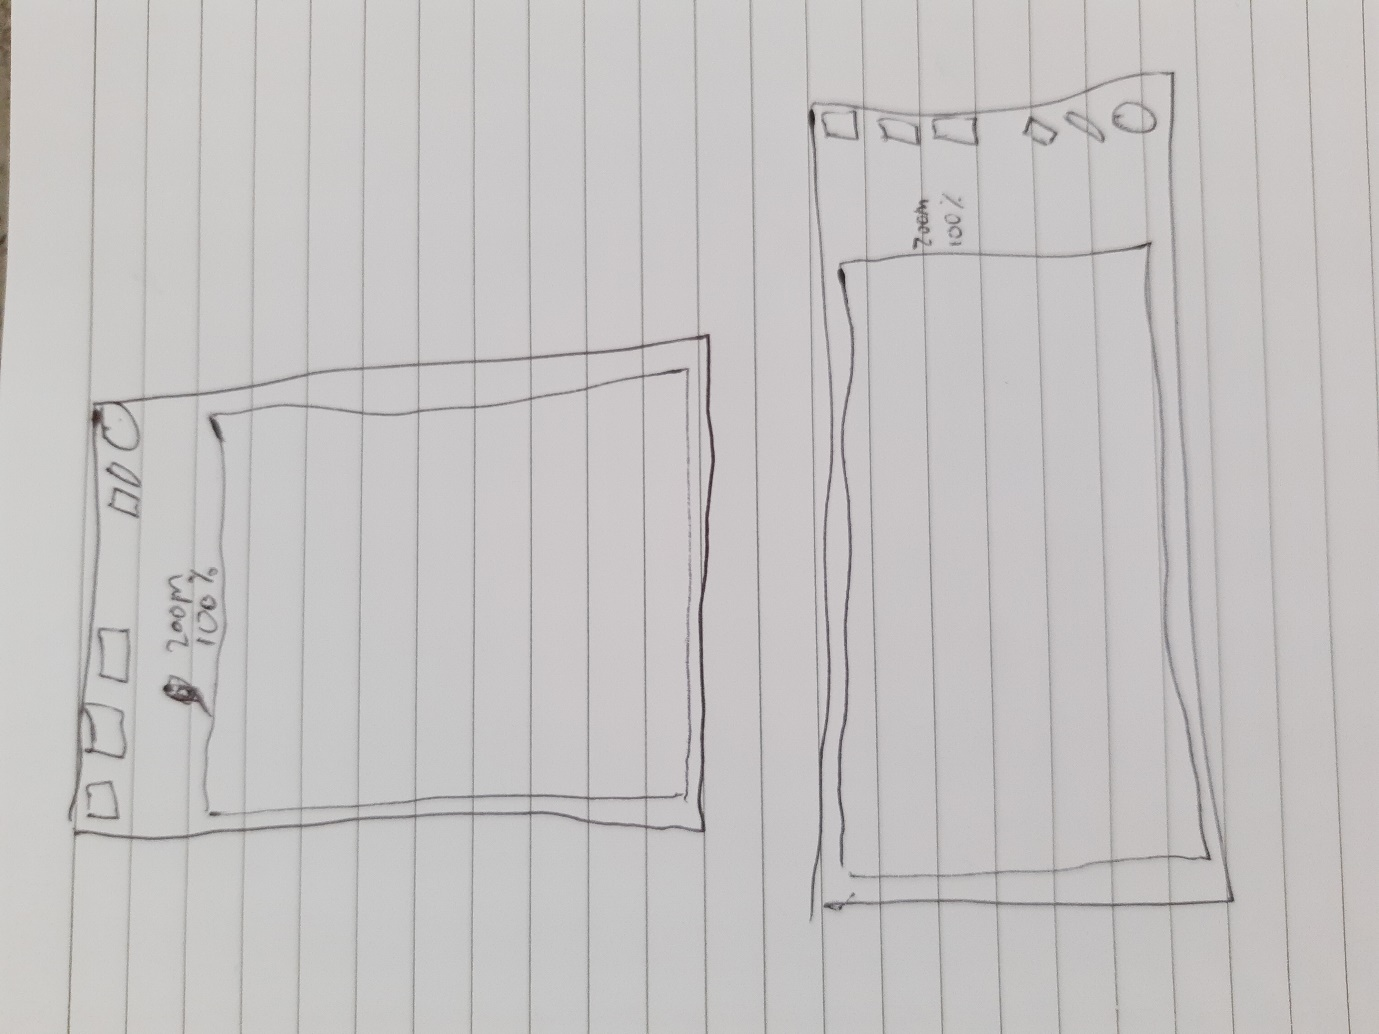 zoom
100%
zoom
100%